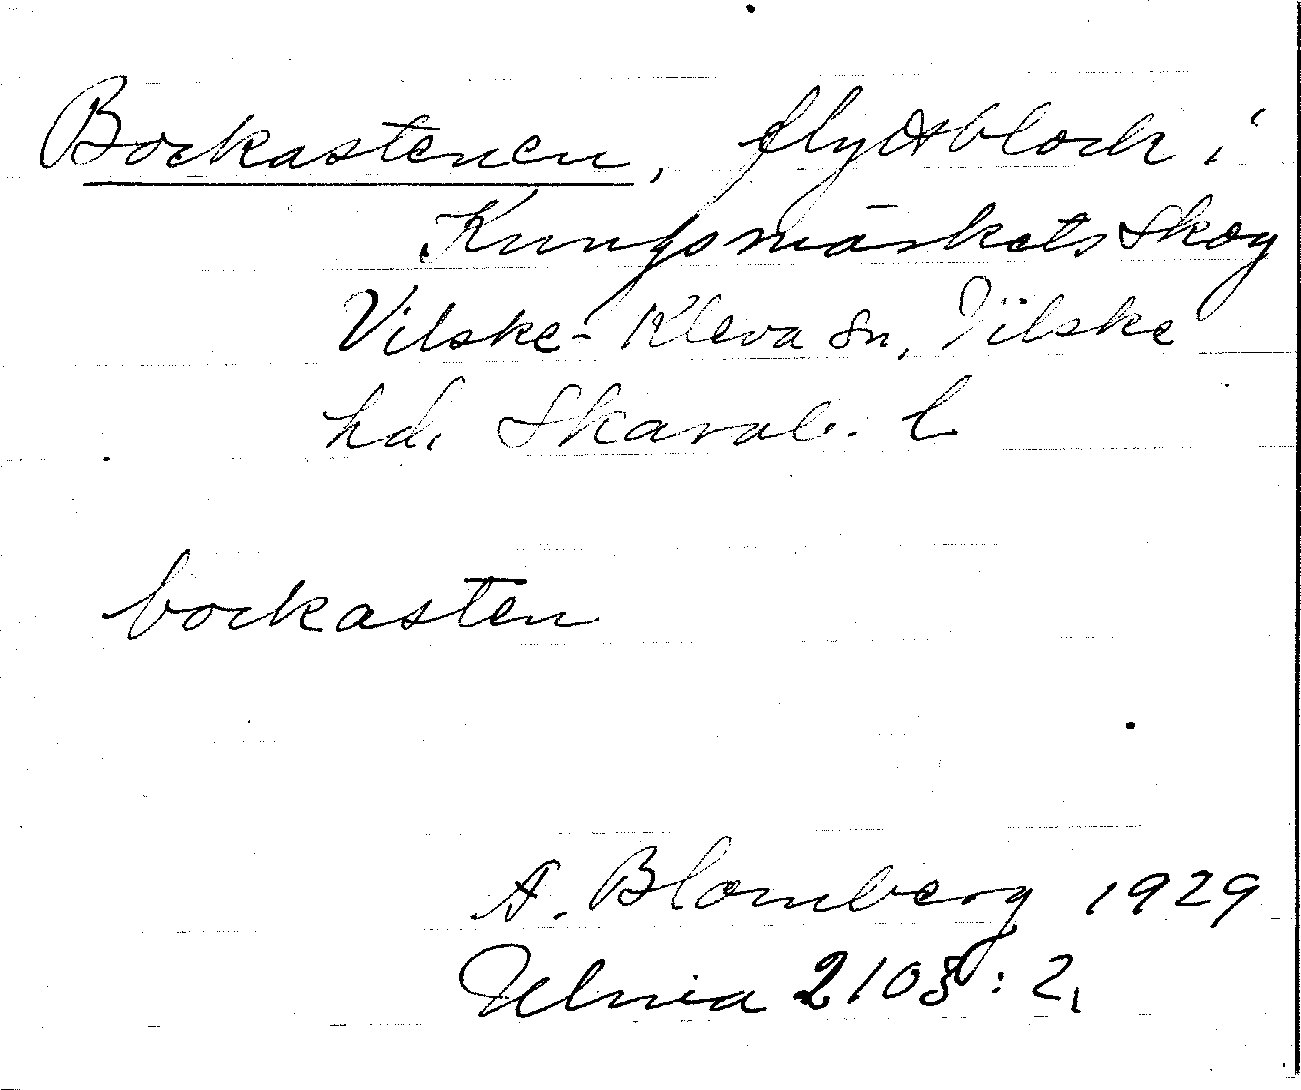 Bockastenen, flyttblock i
Kungsmärkets Skog
Vilske-Kleva sn, Vilske
hd. Skarab. l.
bockasten
A. Blomberg 1929
Ulma 2103:2,